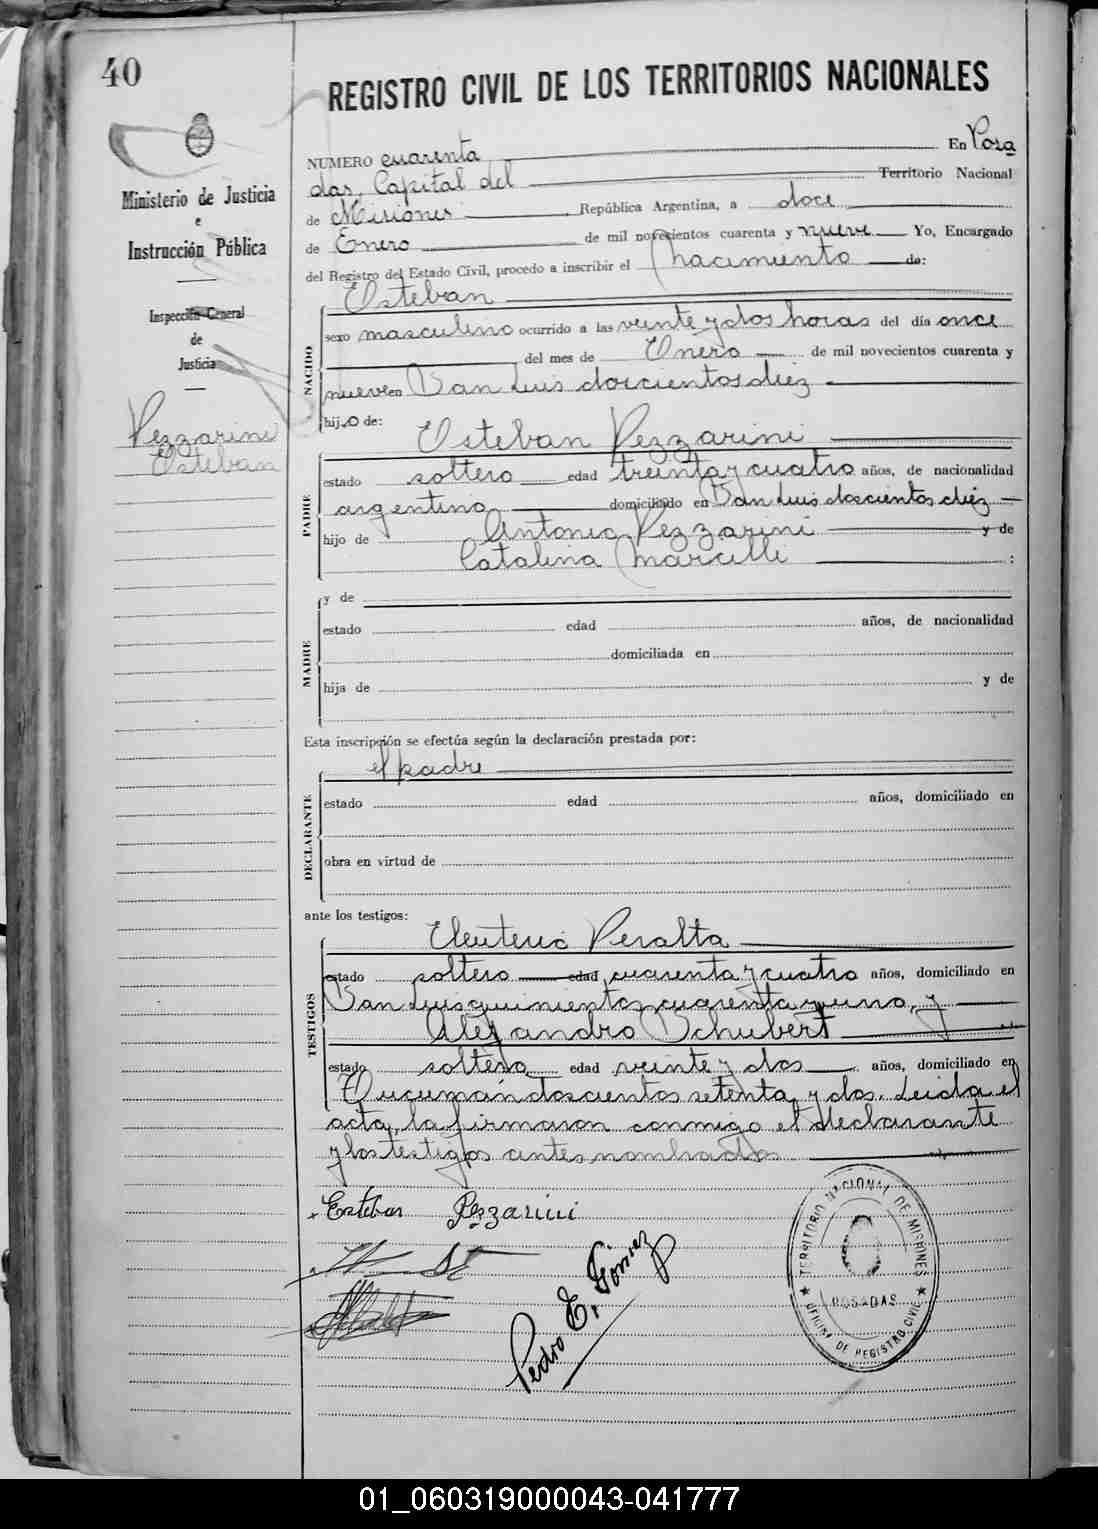 40
REGISTRO CIVIL DE LOS TERRITORIOS NACIONALES
Ministerio de Justicia
e
Instrucción Pública
Inspección General
de
Justicia
Pezzarini
Esteban
NUMERO cuarenta En Posa
das, Capital del Territorio Nacional
de Misiones, República Argentina, a doce
de Enero de mil novecientos cuarenta y nueve Yo, Encargado
del Registro del Estado Civil, procedo a inscribir el nacimiento de:
Esteban
NACIDO
sexo masculino ocurrido a las veinte y dos horas del día once
del mes de Enero de mil novecientos cuarenta y
nueve en San Luis doscientos diez
hijo de:
Esteban Pezzarini
PADRE
estado soltero edad treinta y cuatro años, de nacionalidad
argentino domiciliado en San Luis doscientos diez
hijo de Antonio Pezzarini y de
Catalina Marcilli :
MADRE
y de
estado edad años, de nacionalidad
domiciliada en
hija de y de
Esta inscripción se efectúa según la declaración prestada por:
el padre
DECLARANTE
estado edad años, domiciliado en
obra en virtud de
ante los testigos:
Eleuterio Peralta
TESTIGOS
estado soltero edad cuarenta y cuatro años, domiciliado en
San Luis quinientos cuarenta y uno, y
Alejandro Schubert
estado soltero edad veinte y dos años, domiciliado en
Tucumán doscientos setenta y dos. Leida el
acta, la firmaron conmigo el declarante
y los testigos antes nombrados
Esteban Pezzarini
Pedro E. Gómez
TERRITORIO NACIONAL DE MISIONES
POSADAS
OFICINA DE REGISTRO CIVIL
01_060319000043-041777